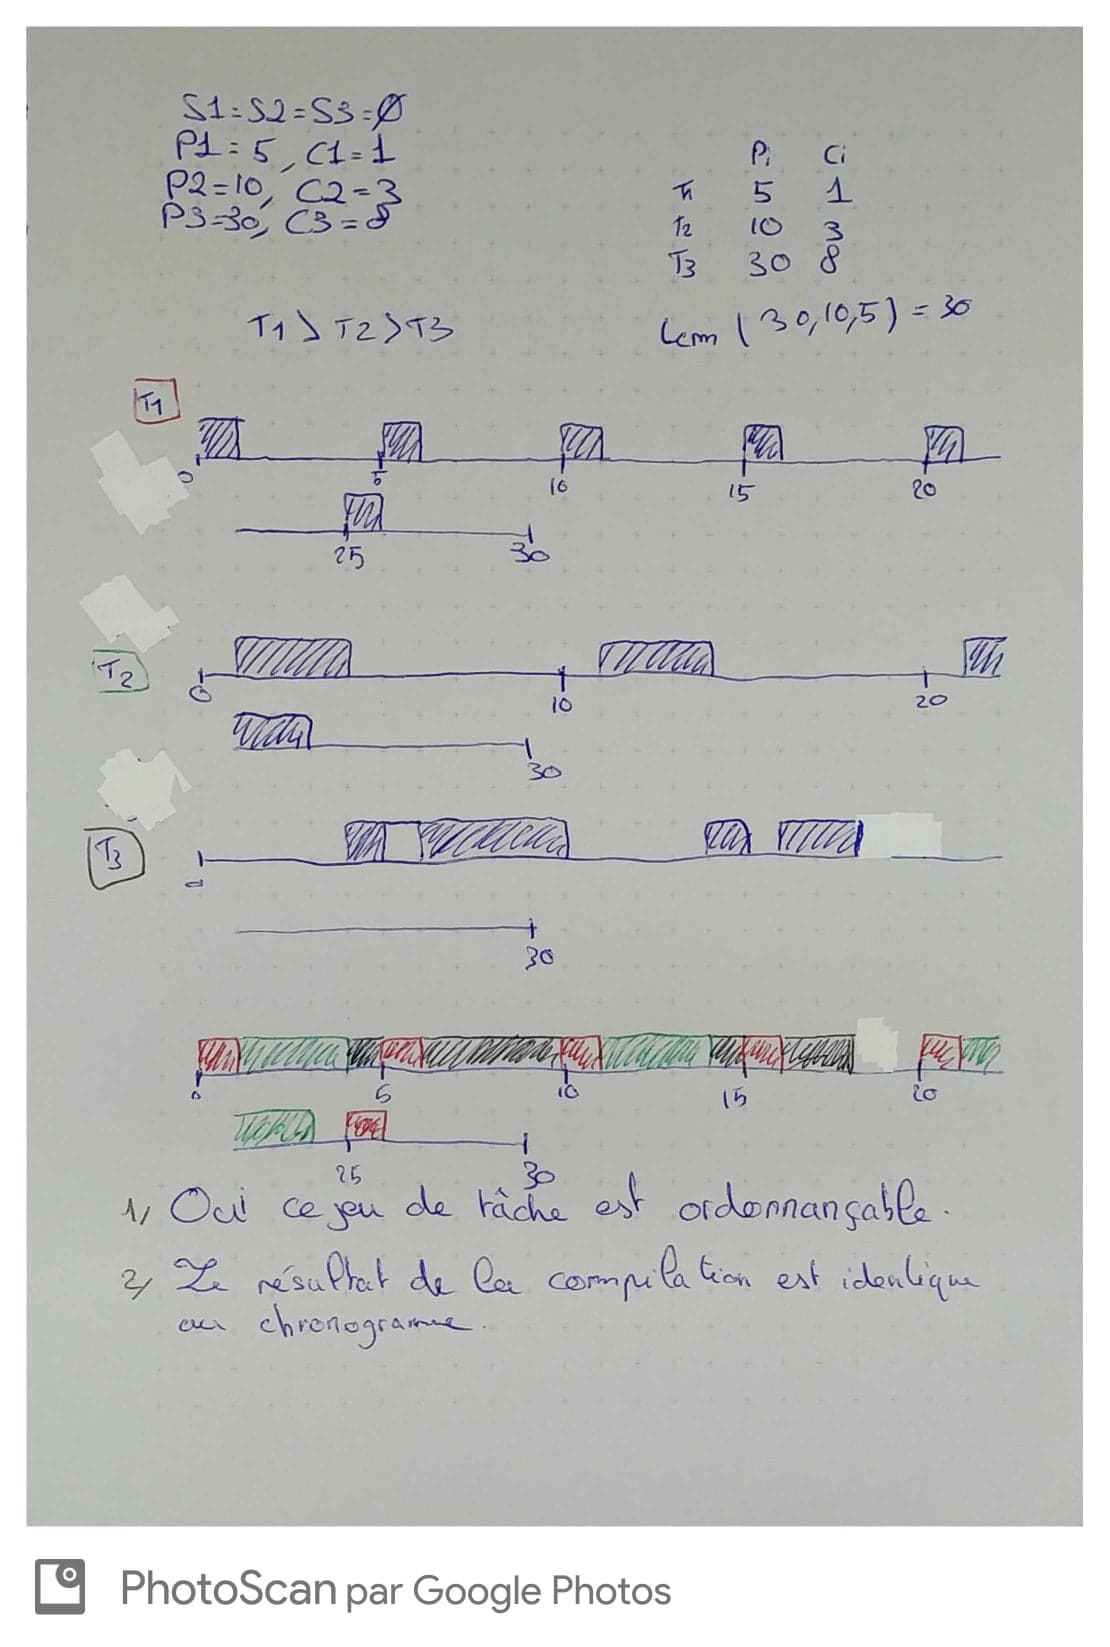 S1=S2=S3=Ø
P1=5, C1=1
P2=10, C2=3
P3=30, C3=8
Pi Ci
T1 5 1
T2 10 3
T3 30 8
T1>T2>T3
Lcm (30,10,5) = 30
T1
0 5 10 15 20
25 30
T2
0 10 20
30
T3
0
30
0 5 10 15 20
25 30
1) Oui ce jeu de tâche est ordonnançable.
2) Le résultat de la compilation est identique
au chronogramme.
PhotoScan par Google Photos